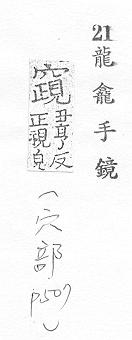 21 龍龕手鏡
竀 丑亨反
正視皃
(穴部
p.507)